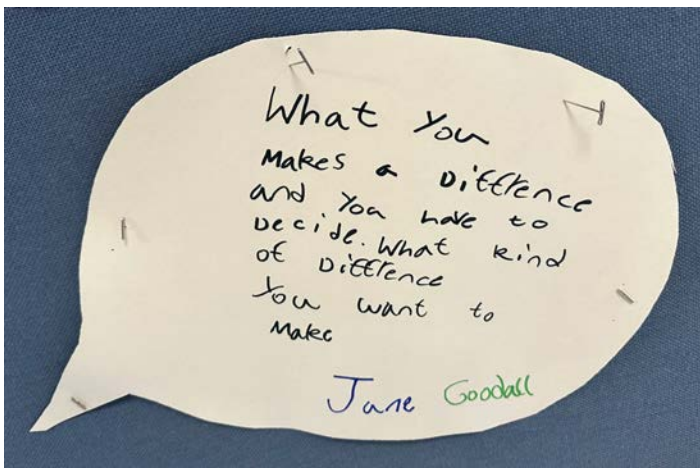 What You
Makes a Difference
and You have to
Decide. What kind
of Difference
You want to
Make
Jane Goodall